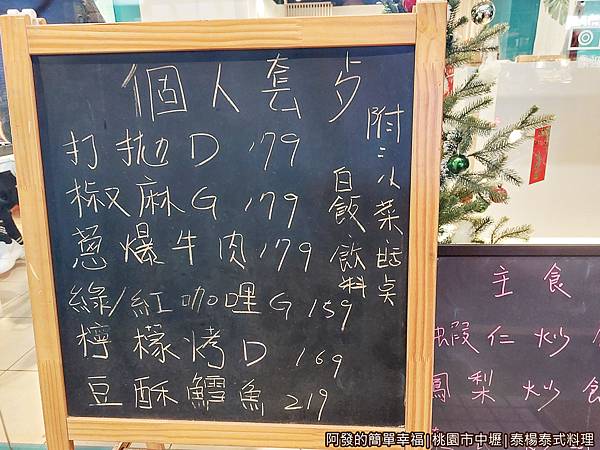 個人套歺
打拋D 179
椒麻G 179
蔥爆牛肉 179
綠/紅咖哩G 159
檸檬烤D 169
豆酥鱈魚 219
附:小菜
白飯/飲料
主食
蝦仁炒
鳳梨炒
阿發的簡單幸福|桃園市中壢|泰楊泰式料理